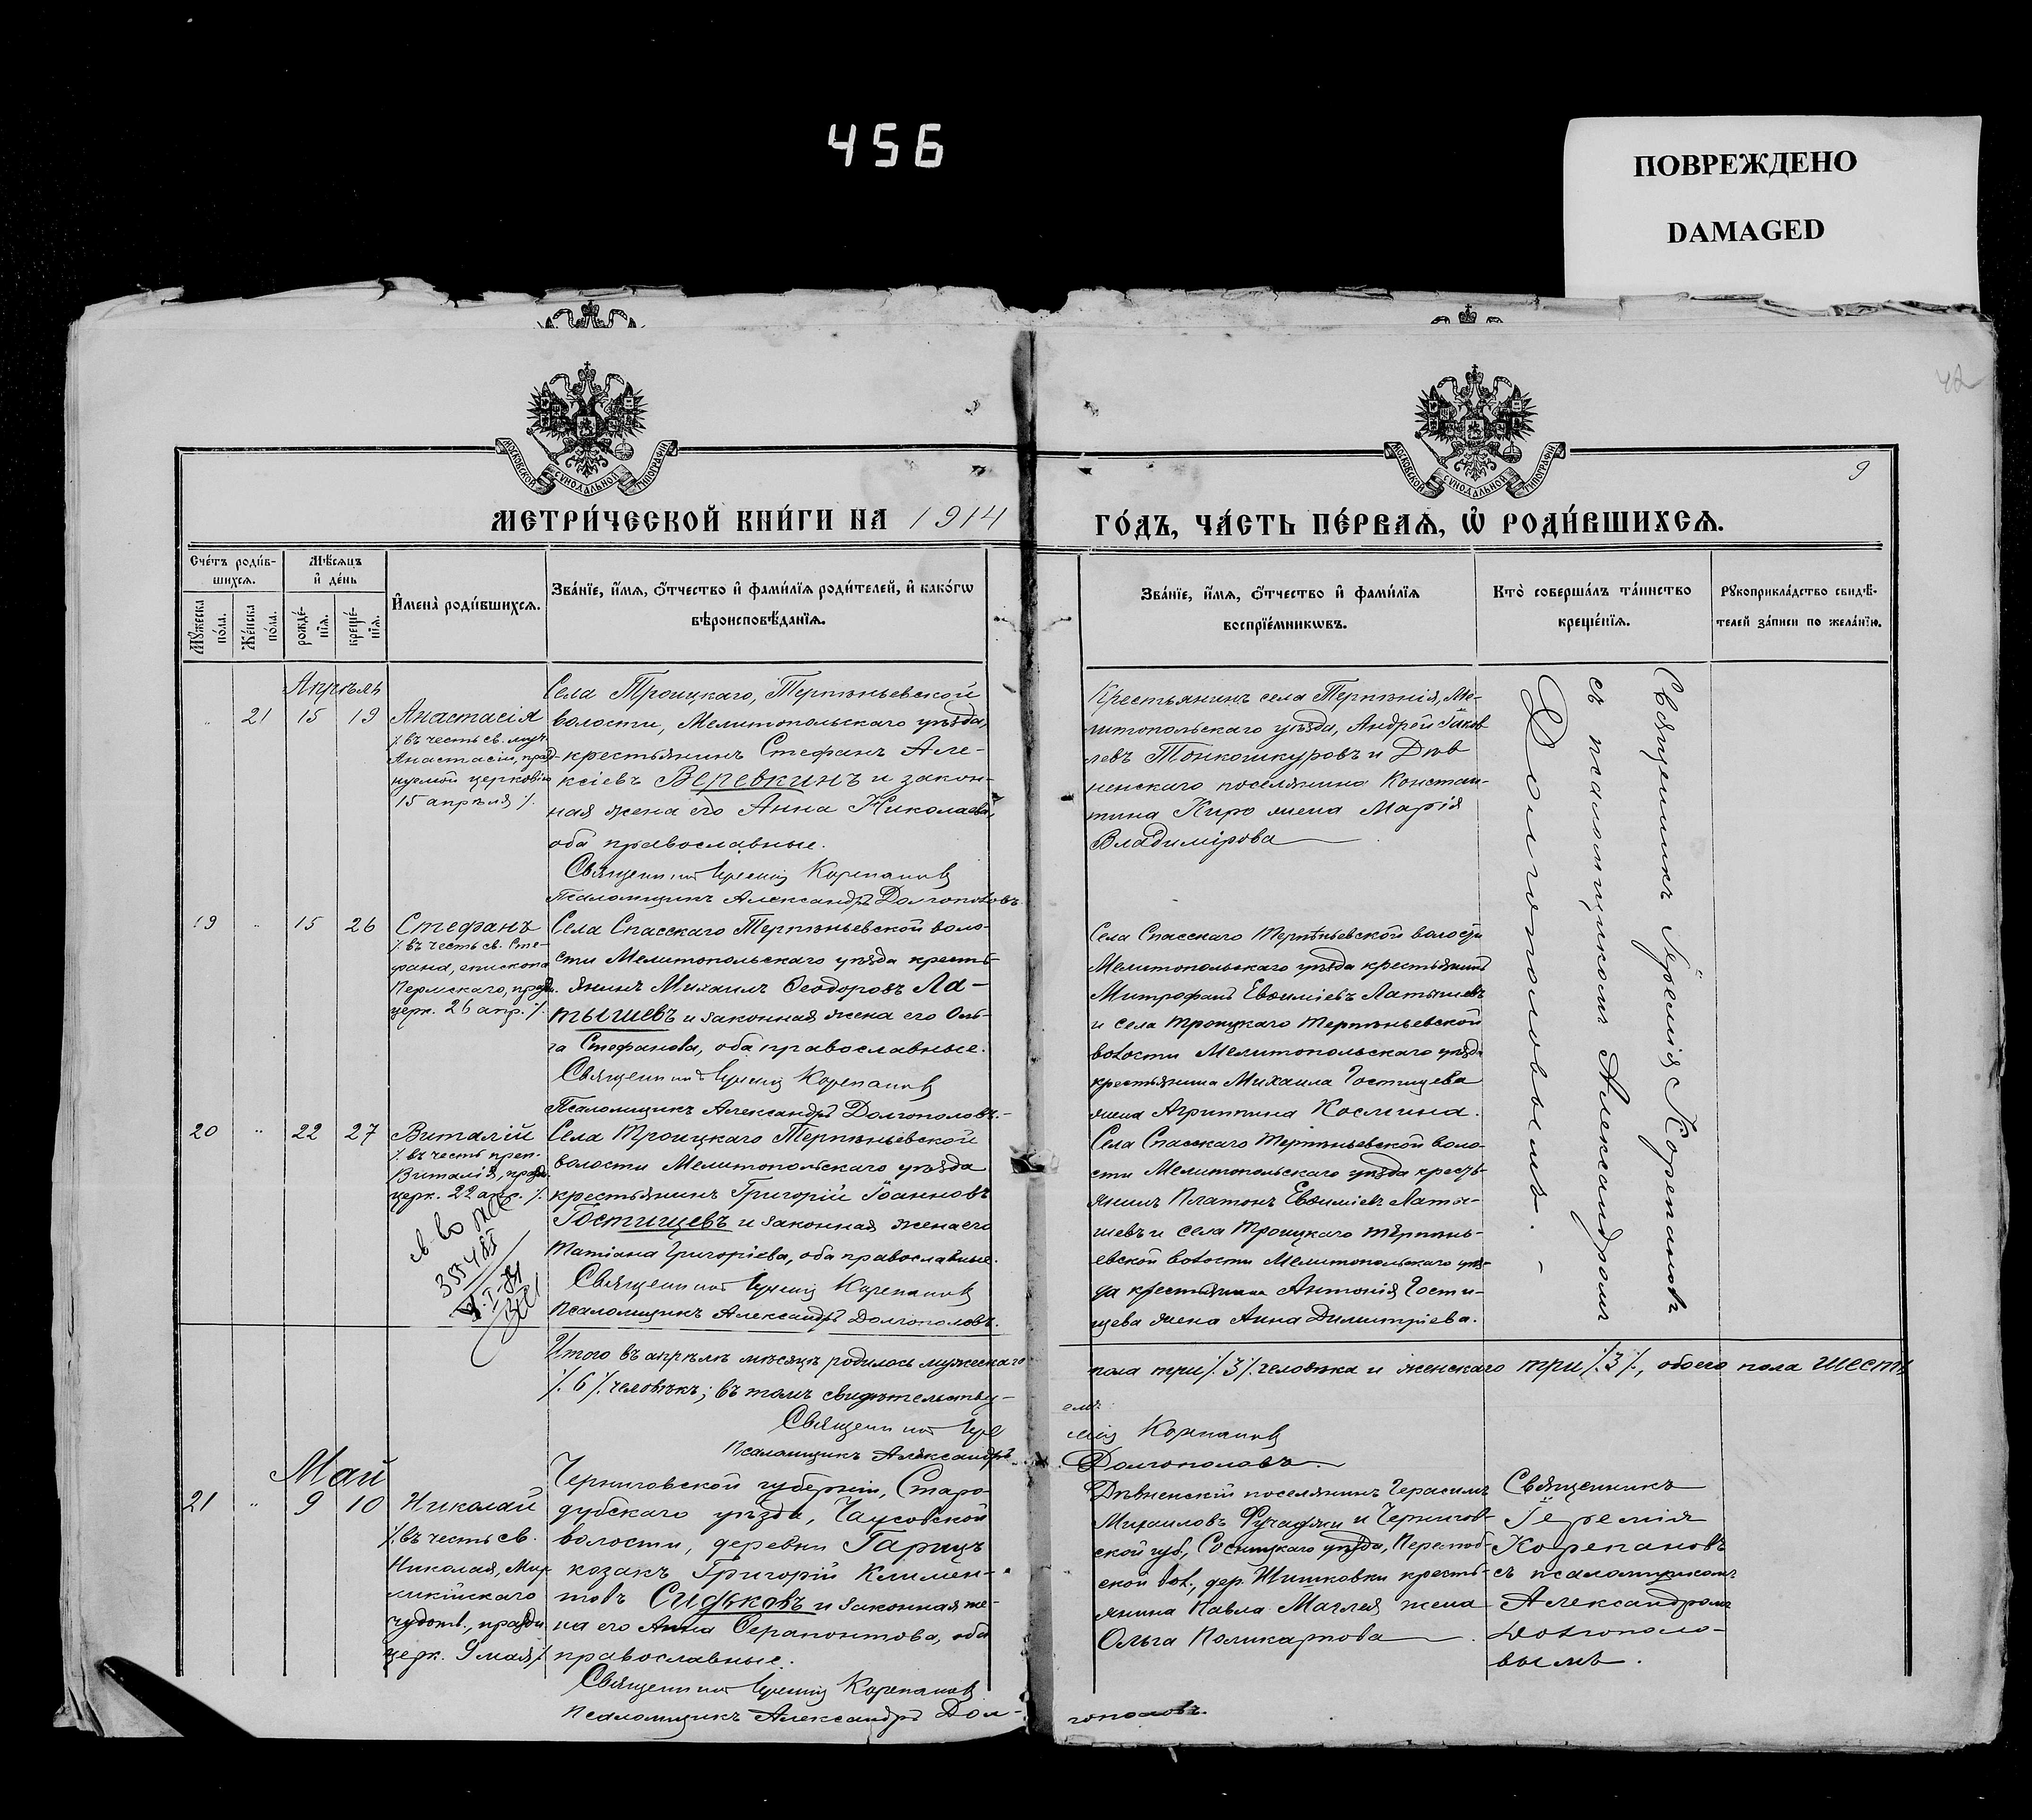 456
ПОВРЕЖДЕНО
DAMAGED
42
9
МОСКОВСКОЙ СѴНОДАЛЬНОЙ ТИПОГРАФІИ
МОСКОВСКОЙ СѴНОДАЛЬНОЙ ТИПОГРАФІИ
МЕТРИ́ЧЕСКОЙ КНИ́ГИ НА 1914
ГО́ДЪ, ЧА́СТЬ ПЕ́РВАѦ, Ѡ҆ РОДИ́ВШИХСѦ.
Сче́тъ роди́в-
шихсѧ.
Мѣ́сѧцъ
и҆ де́нь
Мꙋ́жеска
по́ла.
Же́нска
по́ла.
рожде́-
нїѧ.
креще́-
нїѧ.
И҆мена̀ роди́вшихсѧ.
Зва́нїе, и҆́мѧ, ѻ҆́тчество и҆ фами́лїѧ роди́телей, и҆ како́гѡ
вѣроисповѣ́данїѧ.
Зва́нїе, и҆́мѧ, ѻ҆́тчество и҆ фами́лїѧ
воспрїе́мникѡвъ.
Кто̀ соверша́лъ та́инство
креще́нїѧ.
Рꙋкоприкла́дство свидѣ́-
телей за́писи по жела́нїю.
Апрѣль
" 21 15 19
Анастасія
/. въ честь св. муч.
Анастасіи, празд-
нуемой церковію
15 апрѣля /.
Села Троицкаго, Терпѣньевской
волости, Мелитопольскаго уѣзда,
крестьянинъ Стефанъ Але-
ксіевъ Веревкинъ и закон-
ная жена его Анна Николаева,
оба православные.
Священникъ Іеремія Корепановъ
Псаломщикъ Александръ Долгополовъ.
Крестьянинъ села Терпѣнія, Ме-
литопольскаго уѣзда, Андрей Іаков
левъ Тонкошкуровъ и Дѣв
ненскаго поселянина Констан-
тина Киро жена Марія
Владимірова
Священникъ Іеремія Корепановъ
съ псаломщикомъ Александромъ
Долгополовымъ.
19 " 15 26
Стефанъ
/. въ честь св. Сте-
фана, епископа
Пермскаго, празд.
церк. 26 апр. /.
Села Спасскаго Терпѣньевской воло-
сти Мелитопольскаго уѣзда кресть-
янинъ Михаилъ Ѳеодоровъ Ла-
тышевъ и законная жена его Оль-
га Стефанова, оба православные.
Священникъ Іеремія Корепановъ
Псаломщикъ Александръ Долгополовъ.
Села Спасскаго Терпѣньевской волости
Мелитопольскаго уѣзда крестьянинъ
Митрофанъ Евѳиміевъ Латышевъ
и села Троицкаго Терпѣньевской
волости Мелитопольскаго уѣзда
крестьянина Михаила Гостищева
жена Агриппина Космина.
20 " 22 27
Виталій
/. въ честь преп.
Виталія, празд.
церк. 22 апр. /.
Села Троицкаго Терпѣньевской
волости Мелитопольскаго уѣзда
крестьянинъ Григорій Іоанновъ
Гостищевъ и законная жена его
Татіана Григоріева, оба православные.
Священникъ Іеремія Корепановъ
Псаломщикъ Александръ Долгополовъ.
Села Спасскаго Терпѣньевской воло-
сти Мелитопольскаго уѣзда кресть-
янинъ Платонъ Евѳиміевъ Латы-
шевъ и села Троицкаго Терпѣнь-
евской волости Мелитопольскаго уѣз-
да крестьянина Антонія Гости-
щева жена Анна Димитріева.
Итого въ апрѣлѣ мѣсяцѣ родилось мужескаго
пола три /. 3 /. человѣка и женскаго три /. 3 /., обоего пола шесть
/. 6 /. человѣкъ; въ томъ свидѣтельству-
емъ:
Священникъ Іере
мія Корепановъ
Псаломщикъ Александръ
Долгополовъ.
Май
21 " 9 10
Николай
/. въ честь св.
Николая, Мир
ликійскаго
чудотв., праздн
церк. 9 мая /.
Черниговской губерніи, Старо-
дубскаго уѣзда, Чаусовской
волости, деревни Гарицъ
козакъ Григорій Климен-
товъ Сидьковъ и законная же-
на его Анна Ѳерапонтова, оба
православные.
Священникъ Іеремія Корепановъ
Псаломщикъ Александръ Дол-
гополовъ.
Дѣвненскій поселянинъ Герасимъ
Михаиловъ и Чернигов-
ской губ., Сосницкаго уѣзда,
ской вол., дер. Шишковки кресть-
янина Павла Маглея жена
Ольга Поликарпова
Священникъ
Іеремія
Корепановъ
съ псаломщикомъ
Александромъ
Долгополо-
вымъ.